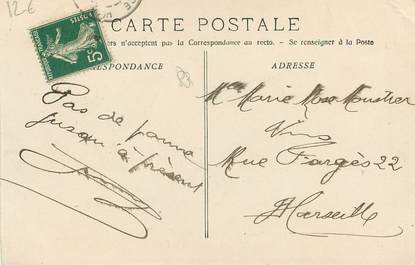 12€
CARTE POSTALE
rs n'acceptent pas la Correspondance au recto. – Se renseigner à la Poste
RESPONDANCE
ADRESSE
5c
Pas de panne
jusqu'à présent
Marie
Vins
Rue Fargès 22
Marseille